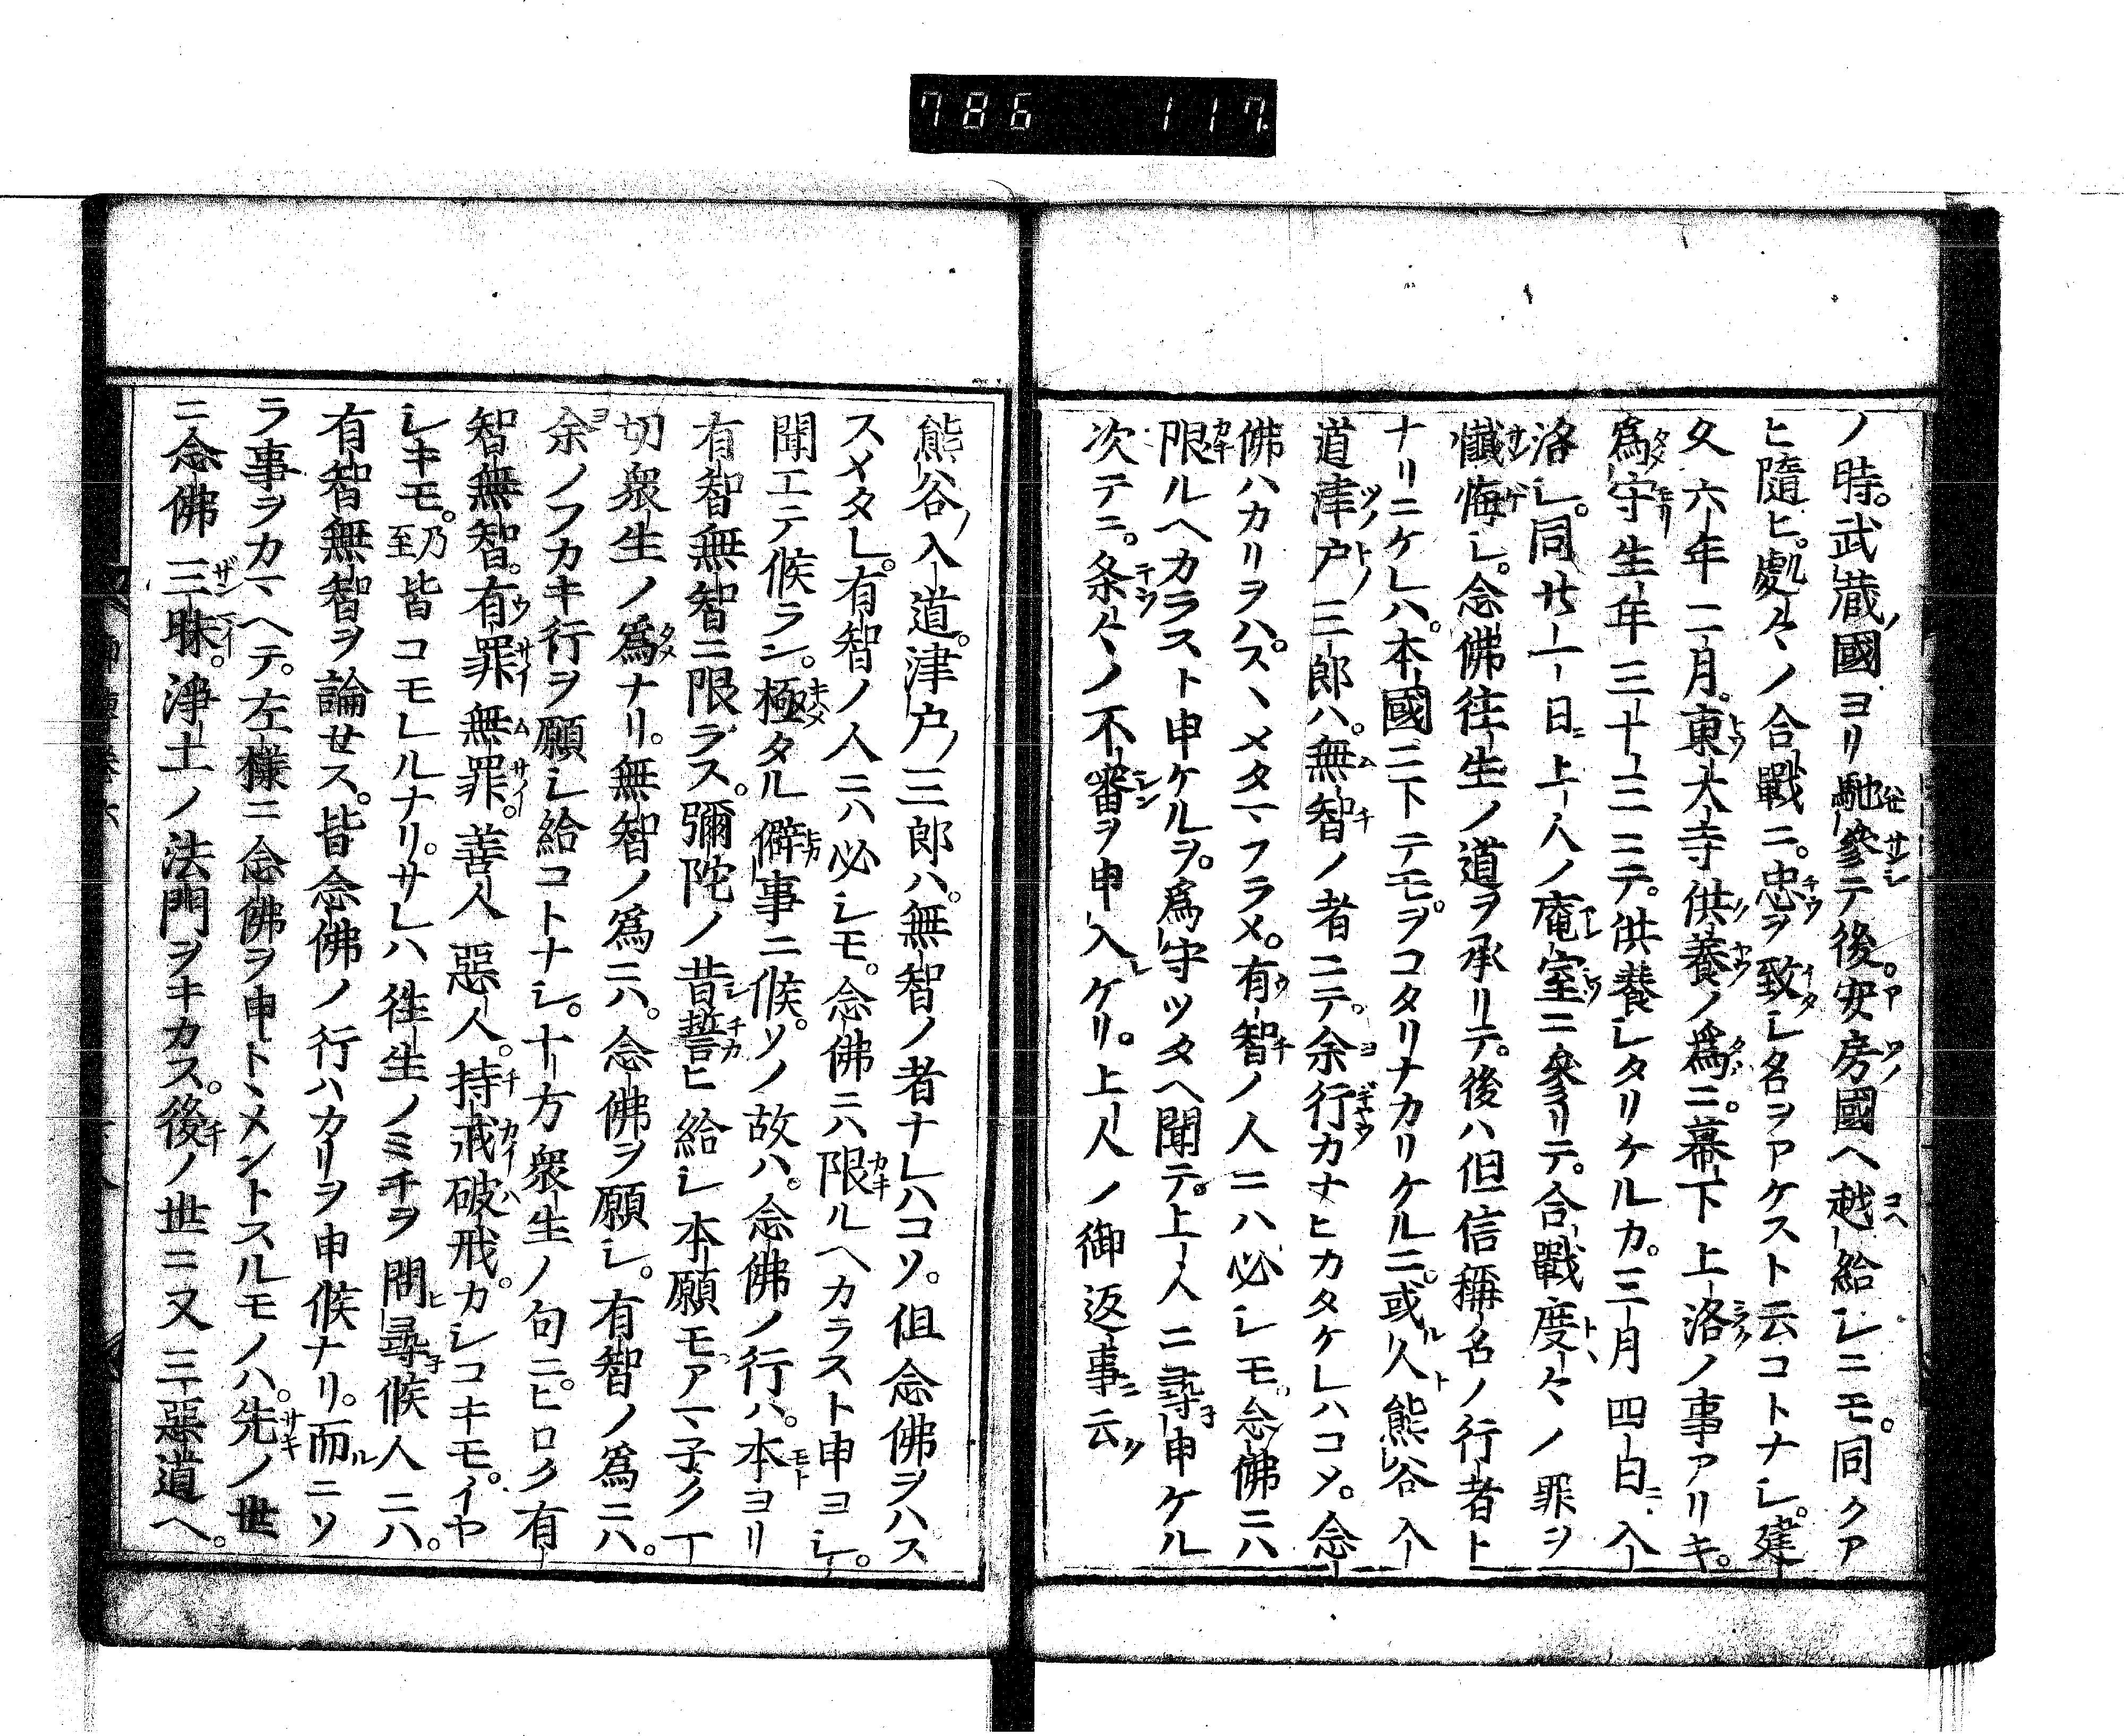 786 117
ノ時。武藏國ヨリ馳參テ後。安房國ヘ越給シニモ。同クア
ヒ隨ヒ。處々ノ合戰ニ。忠ヲ致シ名ヲアケスト云コトナシ。建
久六年二月。東大寺供養ノ爲ニ。幕下上洛ノ事アリキ。
爲守生年三十三ニテ。供養シタリケルカ。三月四日ニ入
洛シ。同廿一日ニ上人ノ庵室ニ參リテ。合戰度々ノ罪ヲ
懺悔シ。念佛往生ノ道ヲ承リテ。後ハ但信稱名ノ行者ト
ナリニケレハ。本國ニ下テモ。ヲコタリナカリケルニ。或人熊谷入
道津戸三郎ハ。無智ノ者ニテ。余行カナヒカタケレハコソ。念
佛ハカリヲハ。スヽメタマフラメ。有智ノ人ニハ必シモ念佛ニハ
限ルヘカラスト申ケルヲ。爲守ツタヘ聞テ。上人ニ尋申ケル
次テニ。条々ノ不審ヲ申入ケリ。上人ノ御返事ニ云ク
熊谷ノ入道。津戸ノ三郎ハ。無智ノ者ナレハコソ。但念佛ヲハス
スメタレ。有智ノ人ニハ必シモ。念佛ニハ限ルヘカラスト申ヨシ。
聞エテ候ラン。極タル僻事ニ候。ソノ故ハ。念佛ノ行ハ。本ヨリ
有智無智ニ限ラス。彌陀ノ昔誓ヒ給シ本願モアマ子ク一
切衆生ノ爲ナリ。無智ノ爲ニハ。念佛ヲ願シ。有智ノ爲ニハ。
余ノフカキ行ヲ願シ給コトナシ。十方衆生ノ句ニ。ヒロク有
智無智。有罪無罪。善人惡人。持戒破戒。カシコキモ。イヤ
シキモ。乃至皆コモレルナリ。サレハ往生ノミチヲ問尋候人ニハ。
有智無智ヲ論セス。皆念佛ノ行ハカリヲ申候ナリ。而ルニソ
ラ事ヲカマヘテ。左樣ニ念佛ヲ申トヽメントスルモノハ。先ノ世
ニ念佛三昧。淨土ノ法門ヲキカス。後ノ世ニ又三惡道ヘ。